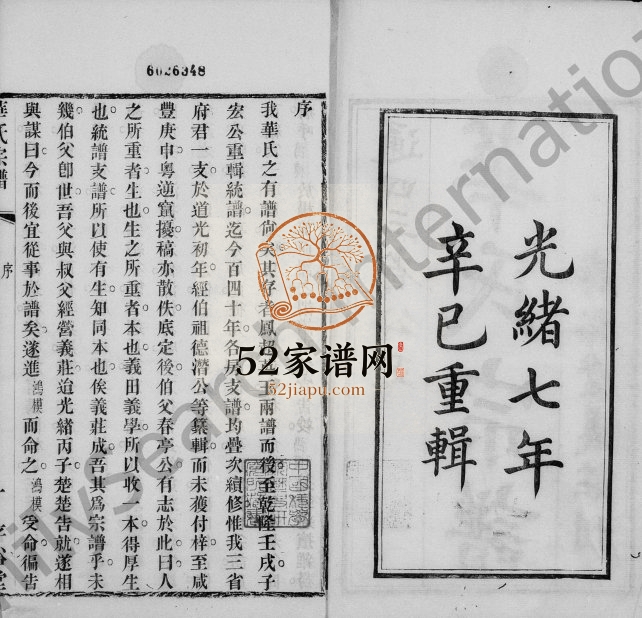 光緒七年
辛巳重輯
6026348
序
我華氏之有譜尙矣其存者鳳超
王兩譜而後至乾隆壬戌子
宏公重輯統譜迄今百四十年各房支譜均疊次續修惟我三省
府君一支於道光初年經伯祖德潛公等纂輯而未獲付梓至咸
豐庚申粵逆竄擾稿亦散佚底定後伯父春亭公有志於此曰人
之所重者生也生之所重者本也義田義學所以收一本得厚生
也統譜支譜所以使有生知同本也俟義莊成吾其爲宗譜乎未
幾伯父卽世吾父與叔父經營義莊迨光緒丙子楚楚告就遂相
與謀曰今而後宜從事於譜矣遂進鴻模而命之鴻模受命徧告
華氏宗譜
序
一
52家谱网
52jiapu.com